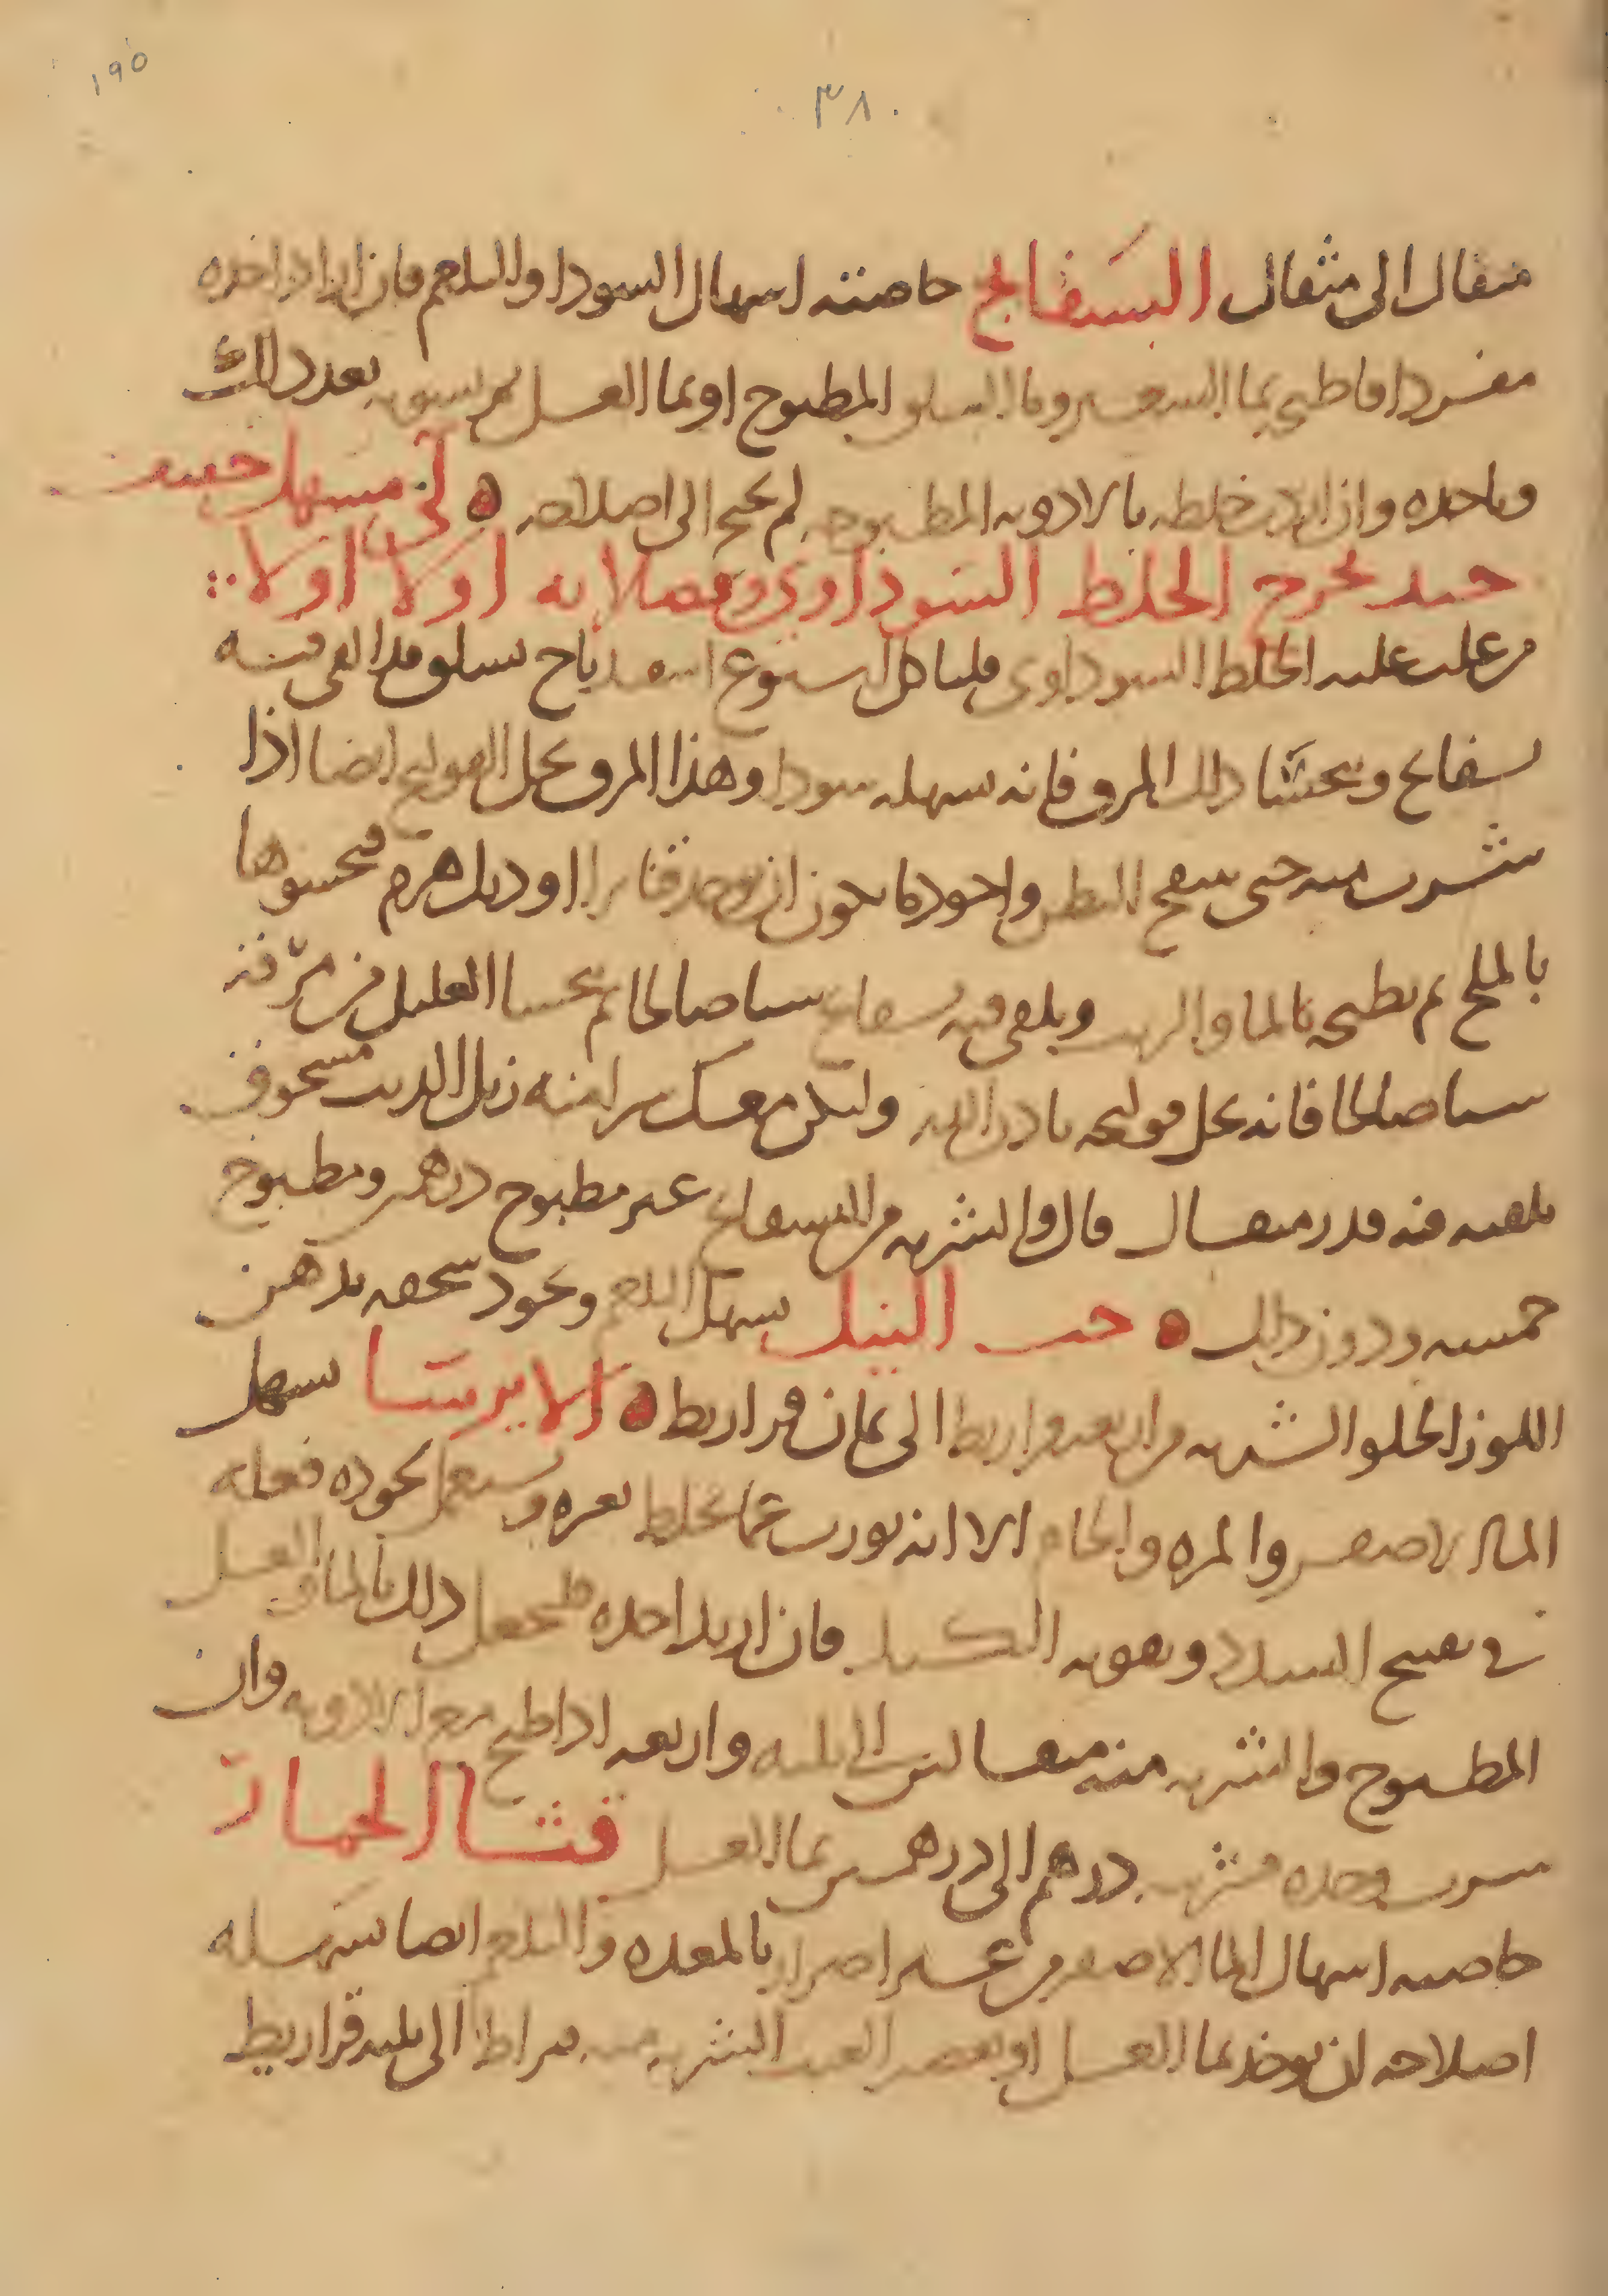 ١٩٥
٣٨٠
مثقال الى مثقال البسفايج خاصته اسهال السودا والبلغم فان اريد اخذه
مفردا فاطبخ بما الشعير وما السلق المطبوخ او بما العسل ثم يسقى بعد ذلك
وياخذه وان اريد خلطه بالادويه المطبوخه لم يحتج الى اصلاحه لى مسهل خفيف
جيد يخرج الخلط السوداوى وفضلاته اولا اولا
من غلب عليه الخلط السوداوى فلياكل اسبوع اسفيدباج بسلق قد القى فيه
بسفايج ويحتسا ذلك المرق فانه يسهله سودا وهذا المرق يحل القولنج ايضا اذا
شرب منه حتى ينتفخ البطن واجود ما يكون ان يوخذ قنابرا او ديك هرم فيحشوها
بالملح ثم يطبخه بالما والزيت ويلقى فيه بسفايج شيا صالحا ثم يحسا العليل من مرقته
شيا صالحا فانه يحل قولنجه باذن الله وليكن معك براينه زبل الديب مسحوق
تلقيه فيه قدر مثقال قال والشربه من البسفايج غير مطبوخ درهمين ومطبوخ
خمسه ودون ذلك حب النيل يسهل البلغم ويجود سحقه بدهن
اللوز الحلو الشربه من اربعه قراريط الى ثمان قراريط الايرسا يسهل
الما الاصفر والمره والخام الا انه يورث غما فليخلط بغيره ويستعمل لجوده فعله
فى تفتيح السدد وتقويه الكبد فان اريد اخذه فليجعل ذلك بالما والعسل
المطبوخ والشربه منه مثقالين الى ثلثه واربعه اذا طبخ مع الادويه وان
شرب وحده فشربه درهم الى درهمين بما العسل قثا الحمار
خاصيه اسهال الما الاصفر من غير اضرار بالمعده والبلغم ايضا يسهله
اصلاحه ان يوخذ بما العسل او بعصير العنب الشربه منه قيراط الى ثلثه قراريط